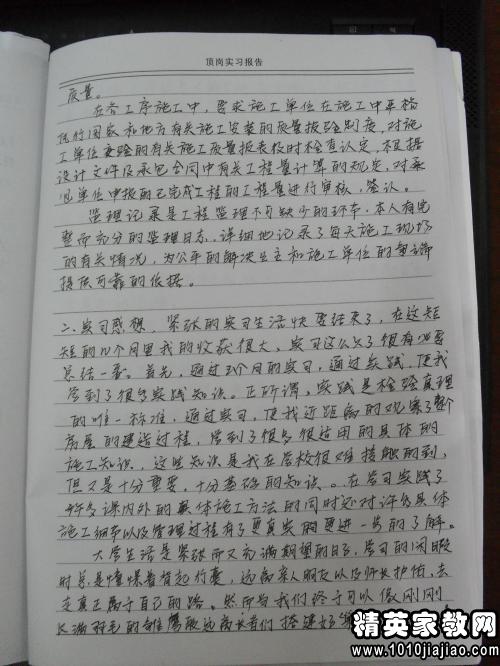 顶岗实习报告
质量。
在各工序施工中,要求施工单位在施工中严格
执行国家和地方有关施工安装的质量报验制度,对施
工单位交验的有关施工质量报表及时检查认定,根据
设计文件及承包合同中有关工程量计算的规定,对承
包单位申报的已完成工程的工程量进行审核,签认。
监理记录是工程监理不可缺少的环节。本人有完
整而充分的监理日志,详细地记录了每天施工现场
的有关情况,为公平的解决业主和施工单位的
提供可靠的依据。
二、实习感想,紧张的实习生活快要结束了,在这短
短的 个月里我的收获很大,实习这么久了很有必要
总结一番。首先,通过 个月的实习,通过实践,使我
学到了很多实践知识。正所谓,实践是检验真理
的唯一标准,通过实习,使我近距离的观察了整个
房屋的建造过程,学到了很多很适用的具体的
施工知识,这些知识是我在学校很难接触的到,
但又是十分重要,十分基础的知识。。在学习实践了
许多课内外的具体施工方法的同时还对许多具体
施工细节以及管理过程有了更真实的更进一步的了解。
大学生活是紧张而又充满期望的日子,学习的闲暇
时总是憧憬着背起行囊,远离亲人朋友以及师长护佑,去
走真正属于自己的路。然而当我们终于可以像刚刚
长满羽毛的雏鹰般远离长者们搭建好
精英家教网
www.1010jiajiao.com